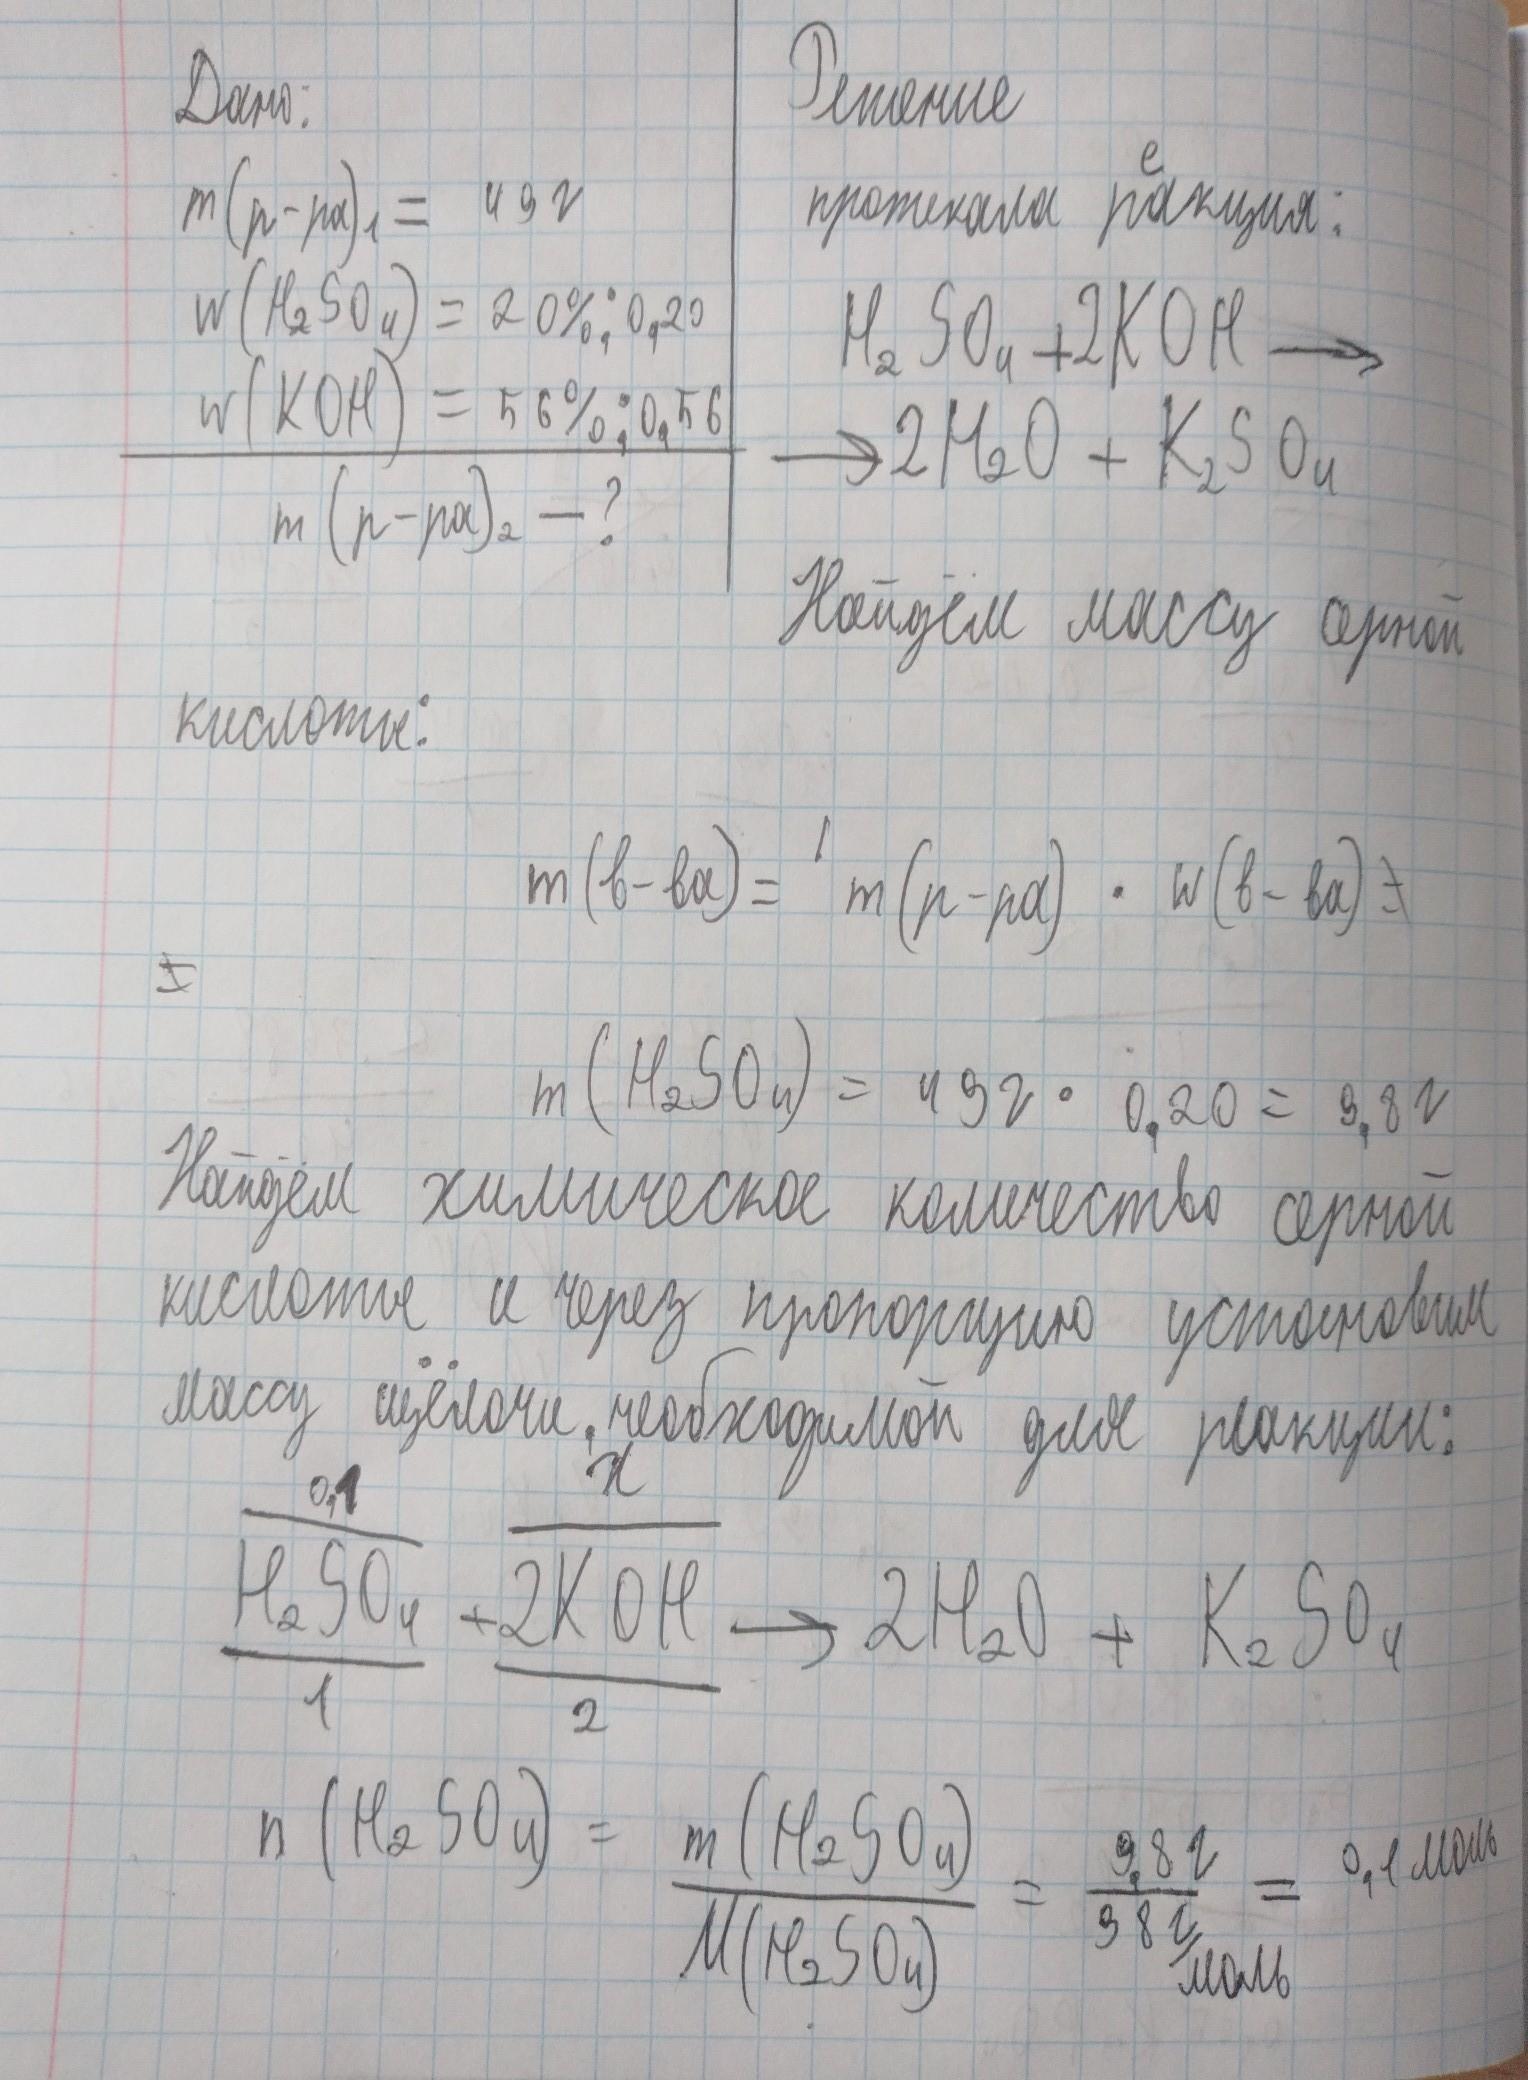 Дано:
m(р-ра)₁ = 49г
w(H₂SO₄) = 20%; 0,20
w(KOH) = 56%; 0,56
m(р-ра)₂ — ?
Решение
протекала реакция:
H₂SO₄ + 2KOH →
→ 2H₂O + K₂SO₄
Найдём массу серной
кислоты:
m(в-ва) = m(р-ра) · w(в-ва)
m(H₂SO₄) = 49г · 0,20 = 9,8г
Найдём химическое количество серной
кислоты и через пропорцию установим
массу щёлочи, необходимой для реакции:
0,1 x
H₂SO₄ + 2KOH → 2H₂O + K₂SO₄
1 2
n(H₂SO₄) = m(H₂SO₄)/M(H₂SO₄) = 9,8г/98г/моль = 0,1 моль